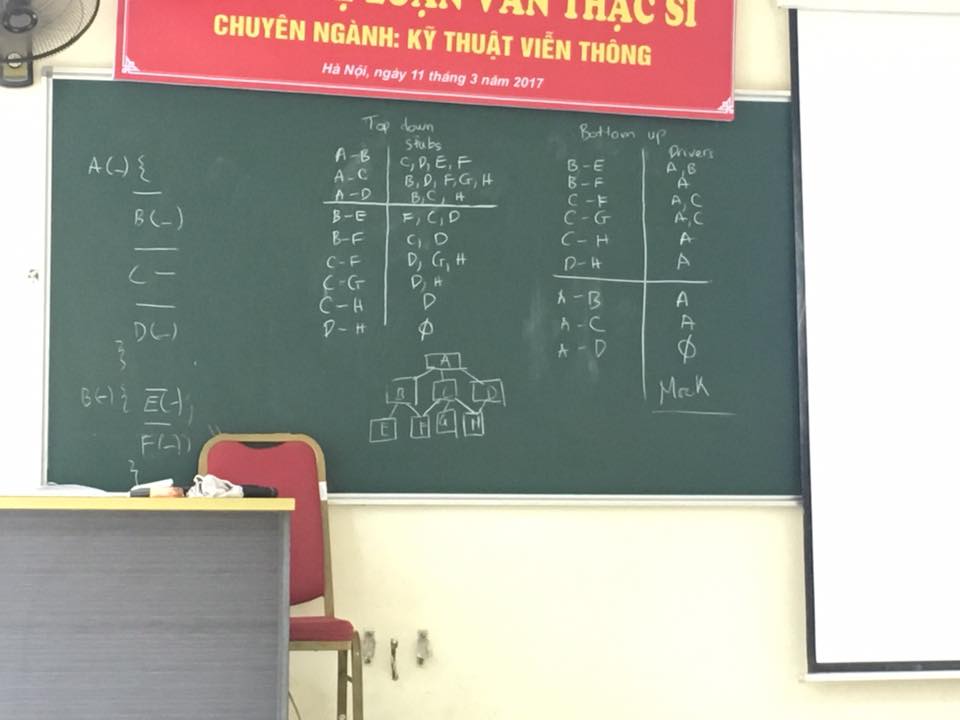 LUẬN VĂN THẠC SĨ
CHUYÊN NGÀNH: KỸ THUẬT VIỄN THÔNG
Hà Nội, ngày 11 tháng 3 năm 2017
A(_) {
B(_)
C —
D(_)
}
B(_) { E(_);
F(_))
}
Top down
stubs
A-B C, D, E, F
A-C B, D, F, G, H
A-D B, C, H
B-E F, C, D
B-F C, D
C-F D, G, H
C-G D, H
C-H D
D-H Ø
A
B C D
E F G H
Bottom up
Drivers
B-E A, B
B-F A
C-F A, C
C-G A, C
C-H A
D-H A
A-B A
A-C A
A-D Ø
Mock